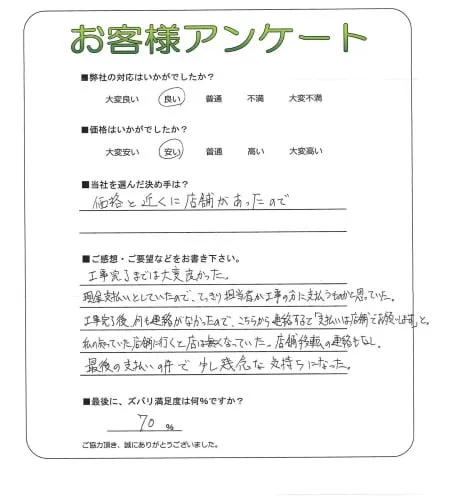 お客様アンケート
■弊社の対応はいかがでしたか?
大変良い 良い 普通 不満 大変不満
■価格はいかがでしたか?
大変安い 安い 普通 高い 大変高い
■当社を選んだ決め手は?
価格と近くに店舗があったので
■ご感想・ご要望などをお書き下さい。
工事完了までは大変良かった。
現金支払いとしていたので、てっきり担当者か工事の方に支払うものかと思っていた。
工事完了後、何も連絡がなかったので、こちらから連絡すると「支払いは店舗でお願いします」と。
私の知っていた店舗に行くと店は無くなっていた。店舗移転の連絡もなし。
最後の支払いの件で少し残念な気持ちになった。
■最後に、ズバリ満足度は何%ですか?
70 %
ご協力頂き、誠にありがとうございました。